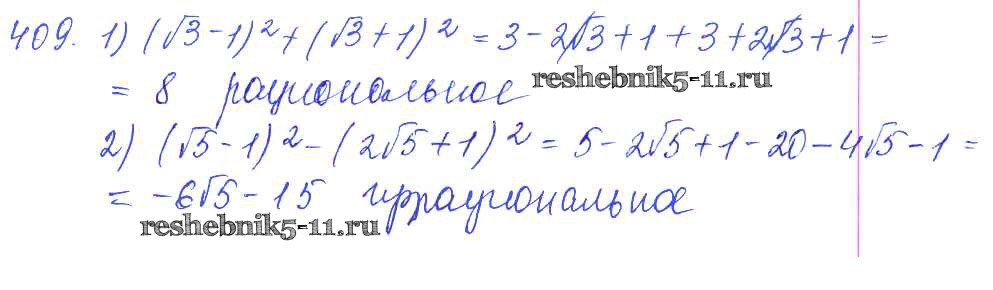 409. 1) (√3 - 1)² + (√3 + 1)² = 3 - 2√3 + 1 + 3 + 2√3 + 1 =
= 8 рациональное
reshebnik5-11.ru
2) (√5 - 1)² - (2√5 + 1)² = 5 - 2√5 + 1 - 20 - 4√5 - 1 =
= -6√5 - 15 иррациональное
reshebnik5-11.ru